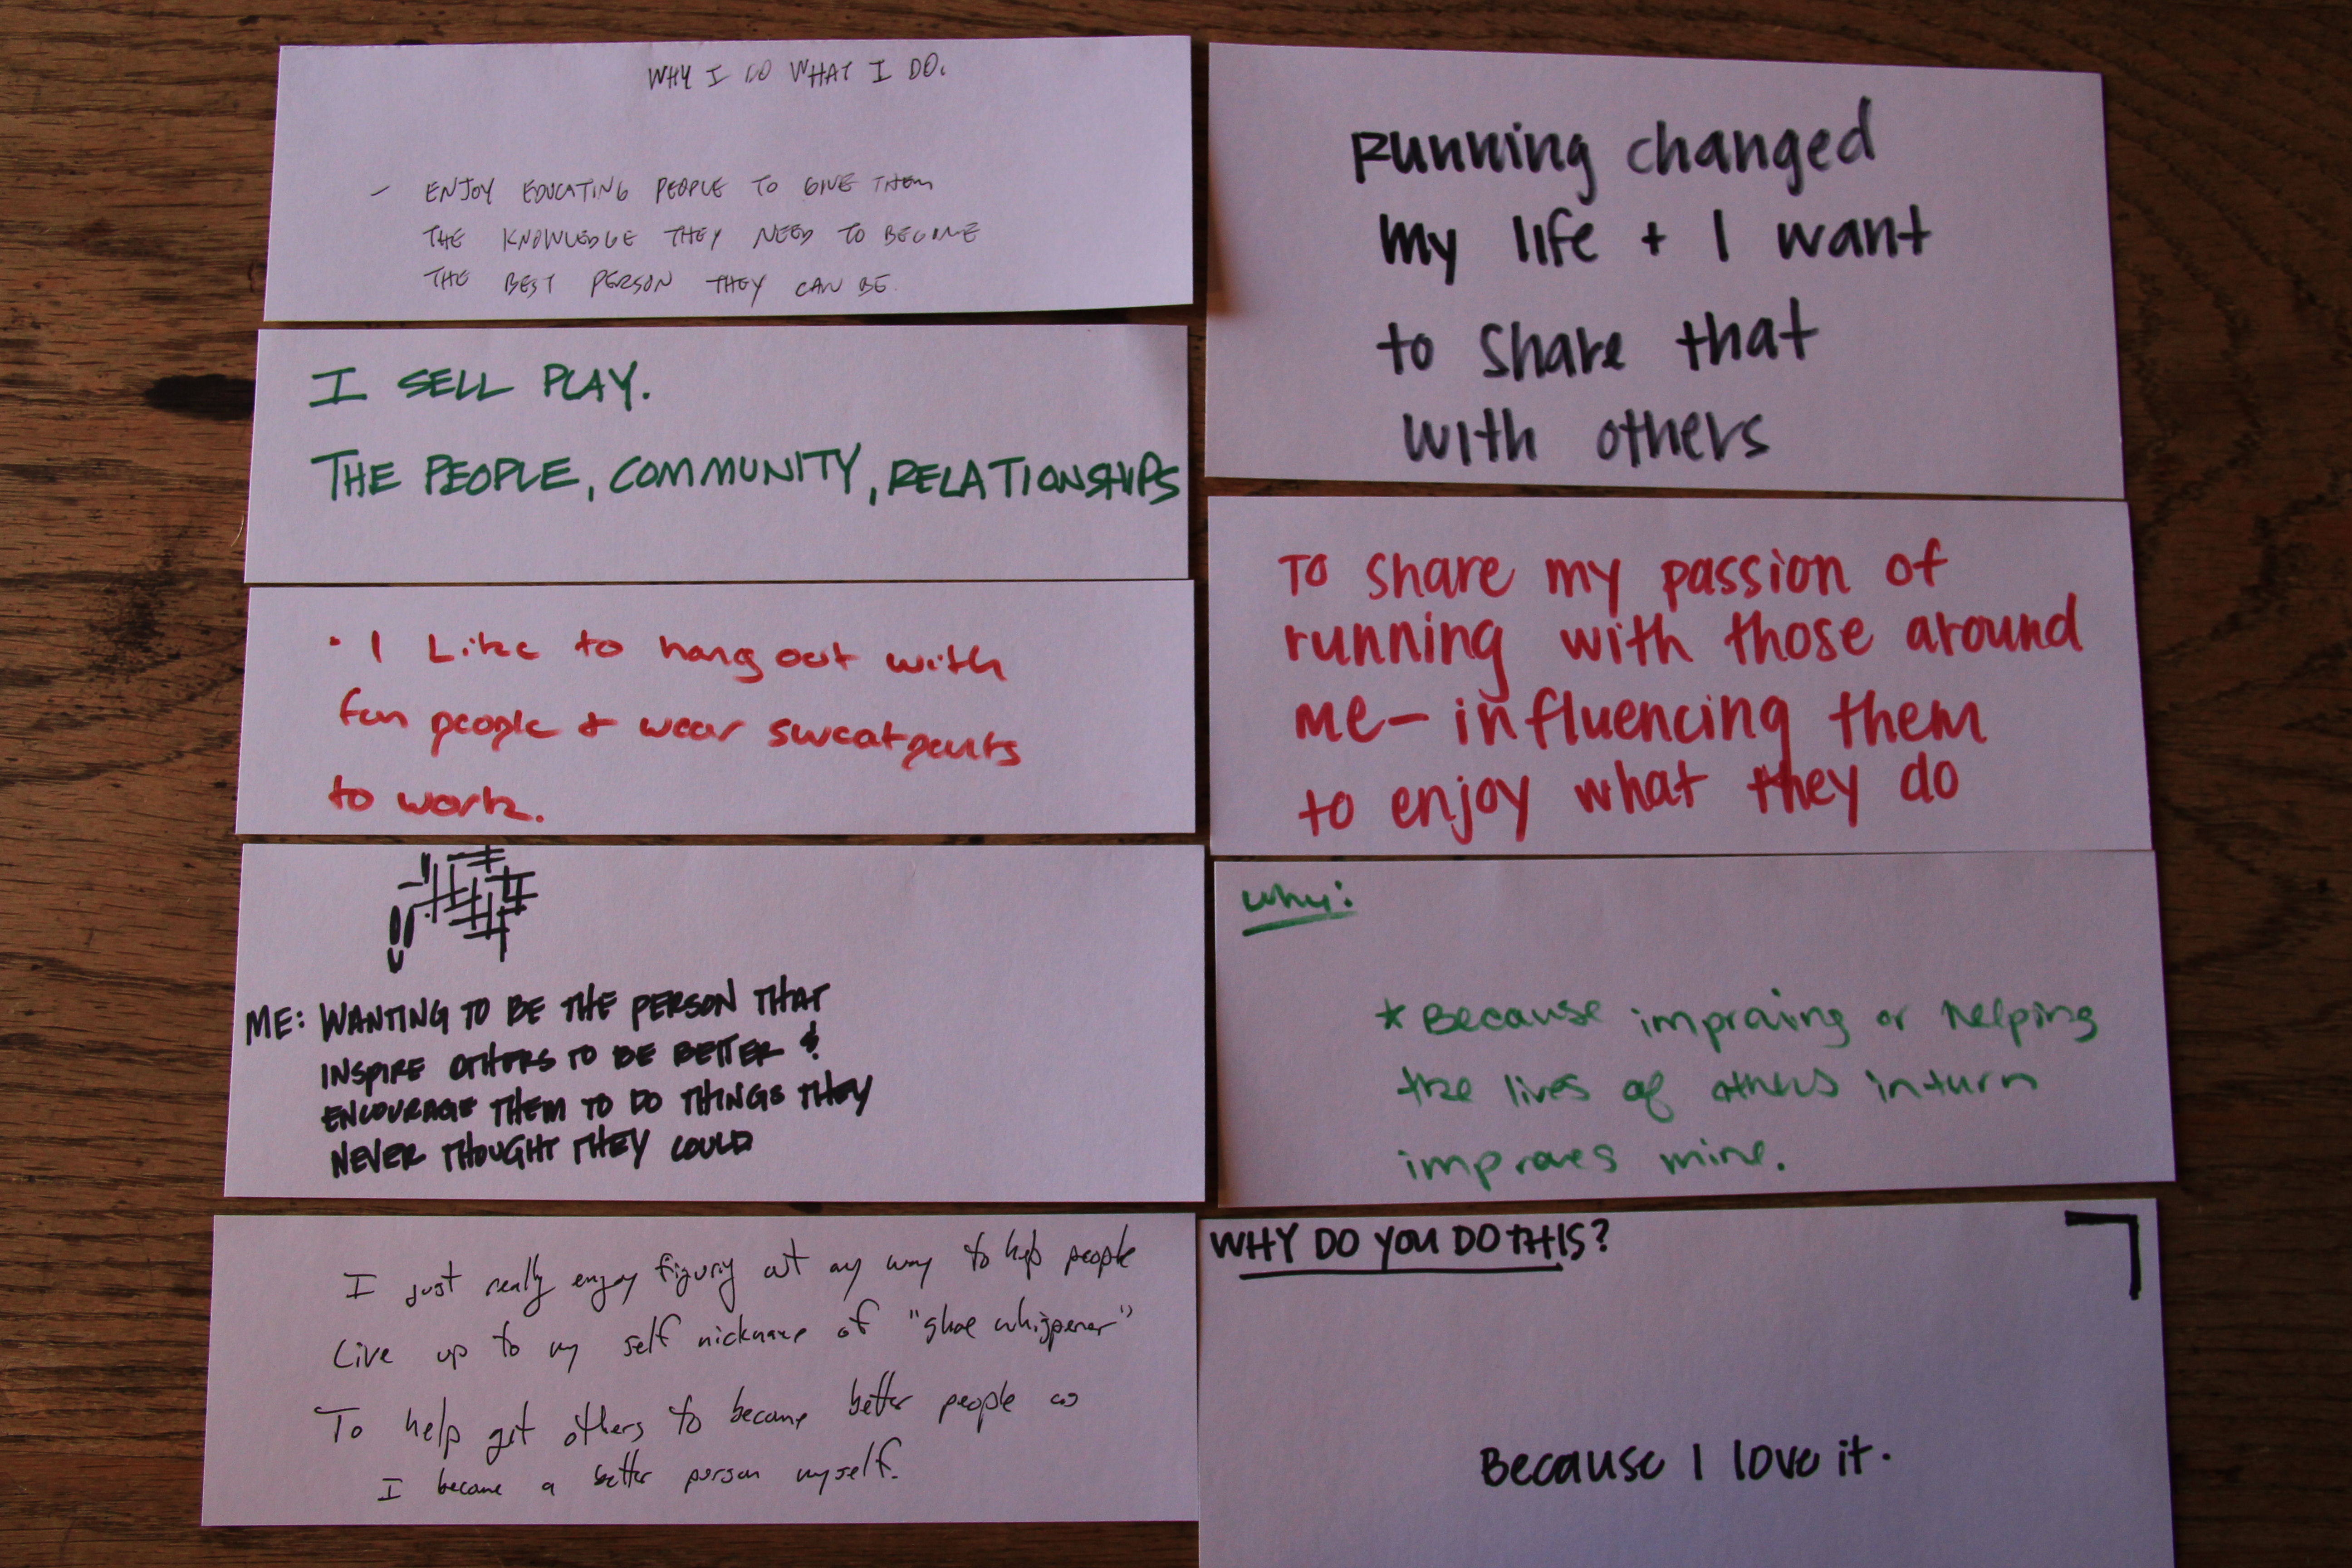 WHY I DO WHAT I DO.
- ENJOY EDUCATING PEOPLE TO GIVE THEM
THE KNOWLEDGE THEY NEED TO BECOME
THE BEST PERSON THEY CAN BE.
I SELL PLAY.
THE PEOPLE, COMMUNITY, RELATIONSHIPS
• I Like to hang out with
fun people + wear sweatpants
to work.
ME: WANTING TO BE THE PERSON THAT
INSPIRE OTHERS TO BE BETTER &
ENCOURAGE THEM TO DO THINGS THEY
NEVER THOUGHT THEY COULD
I just really enjoy figuring out my way to help people
Live up to my self nickname of "shoe whisperer"
To help get others to become better people as
I become a better person myself.
Running changed
my life + I want
to share that
with others
To share my passion of
running with those around
me- influencing them
to enjoy what they do
Why:
* Because improving or helping
the lives of others in turn
improves mine.
WHY DO YOU DO THIS?
Because I love it.